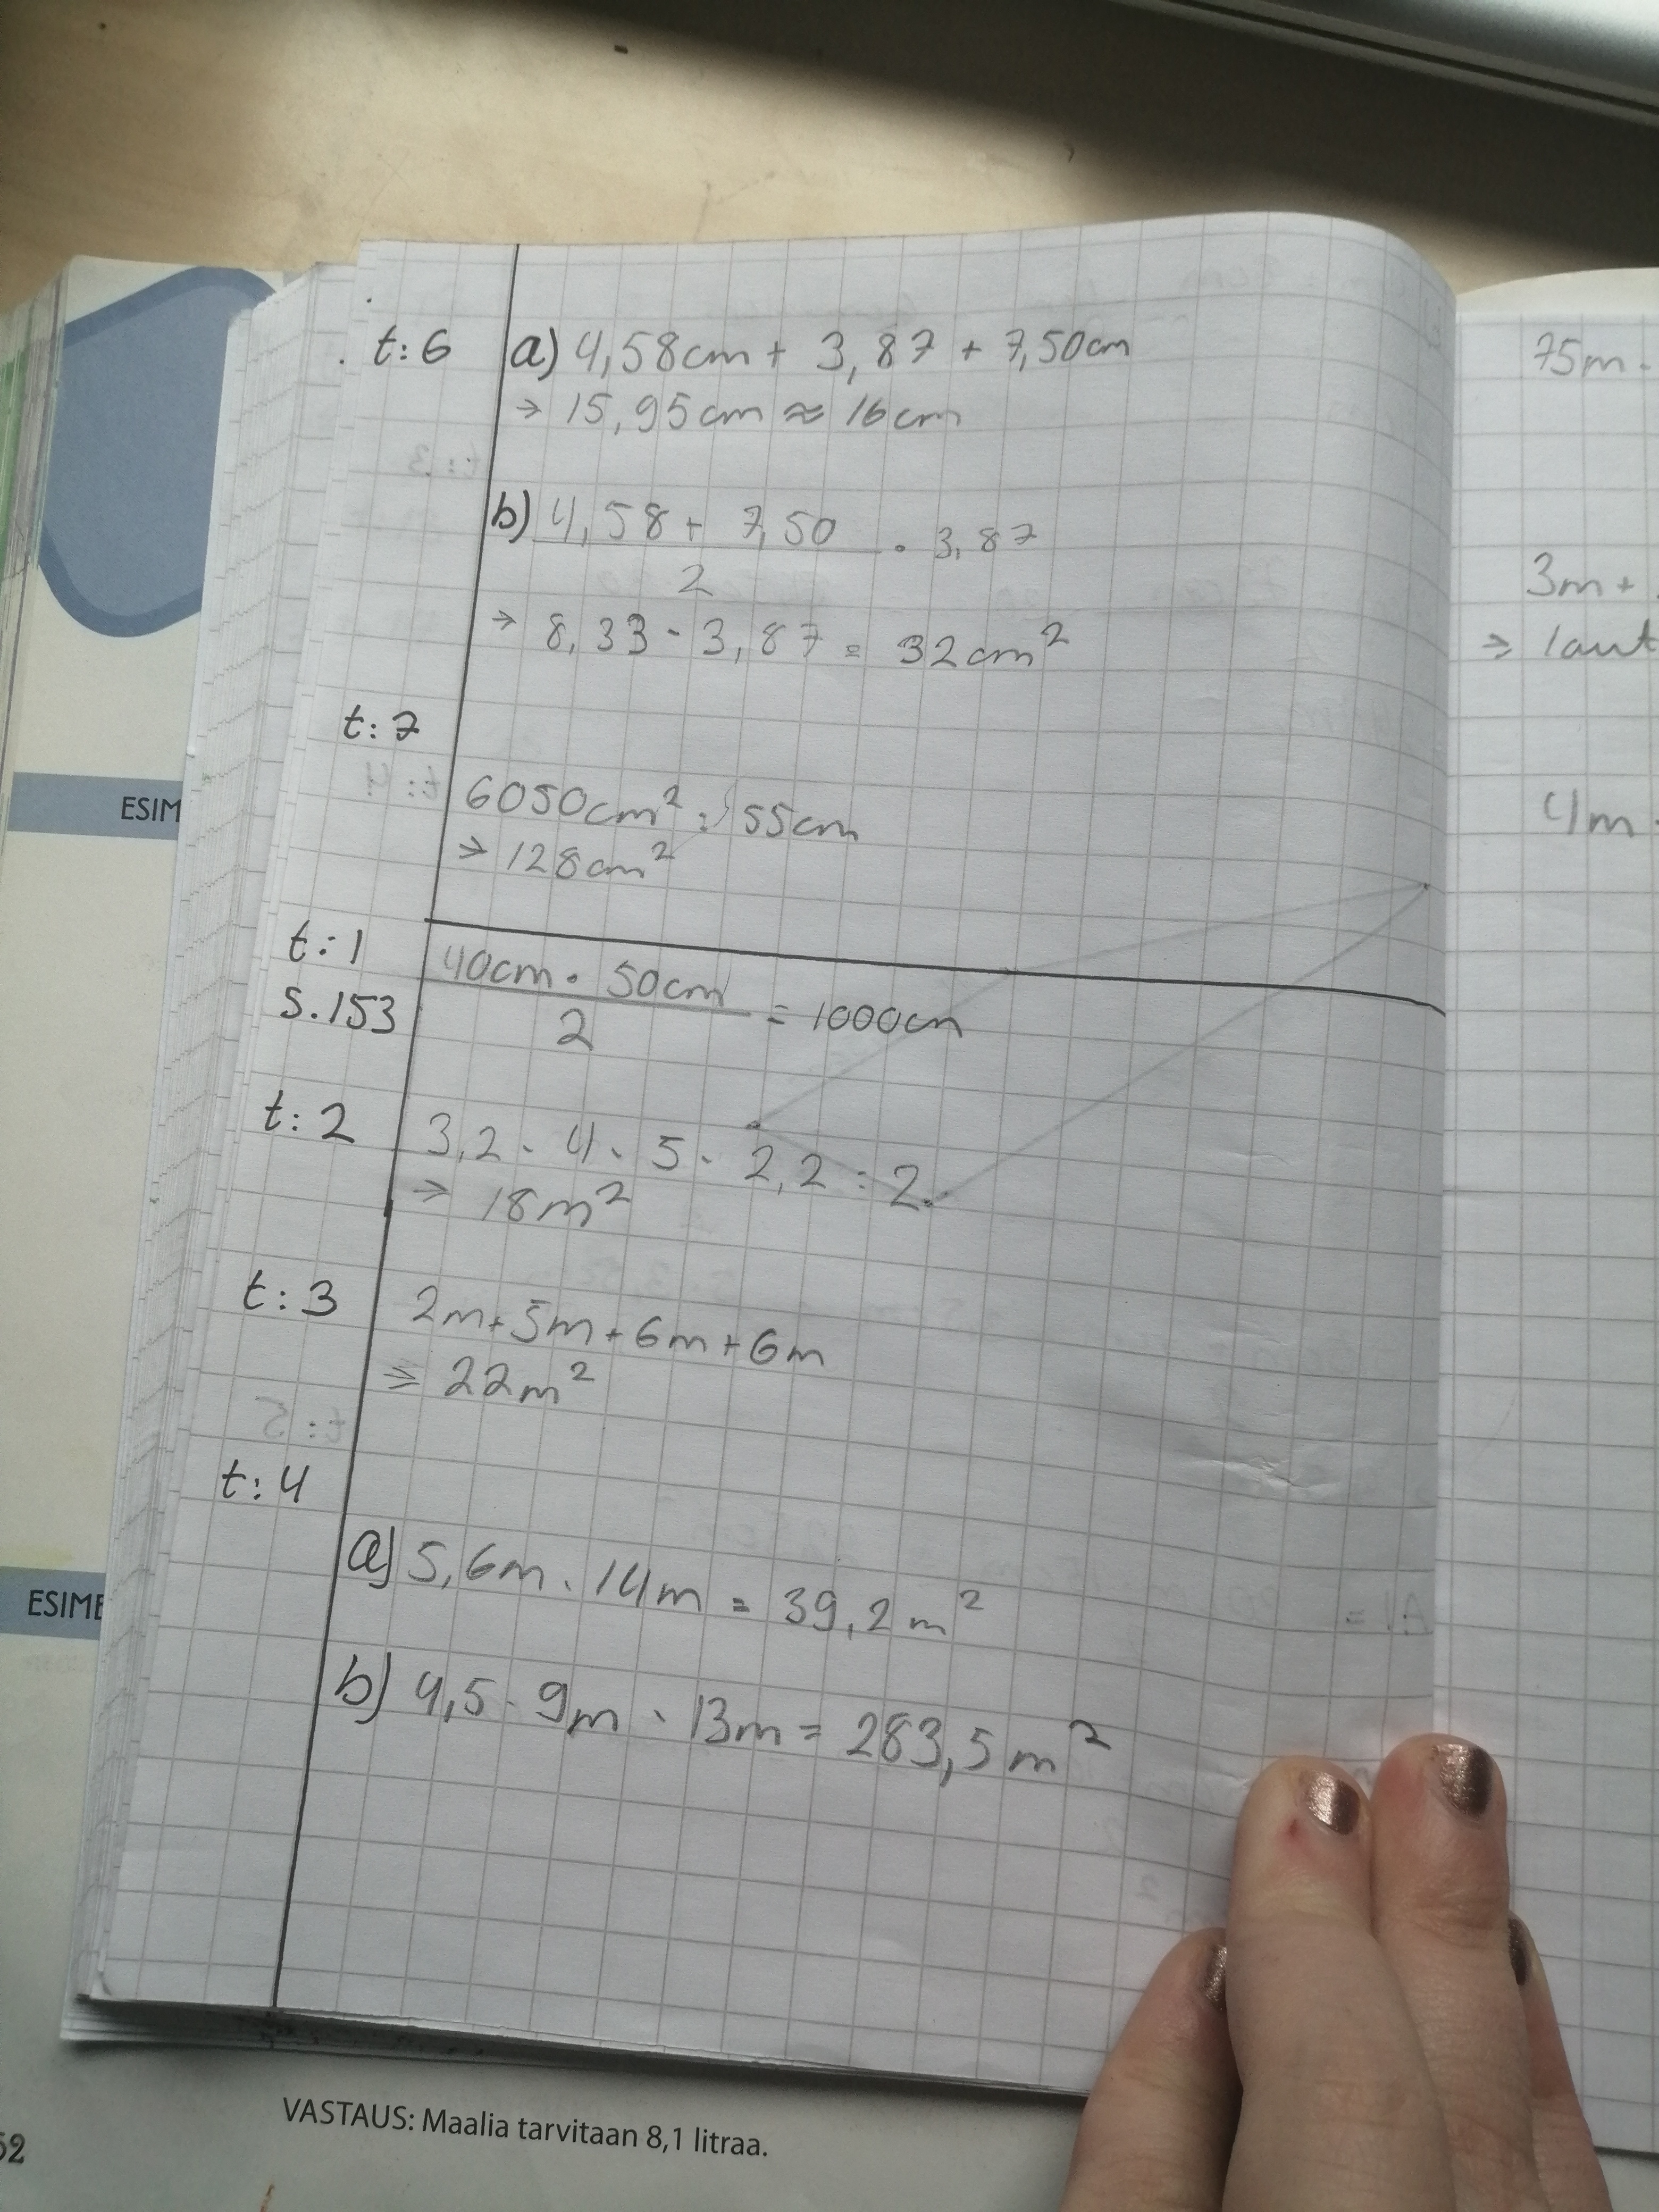 t:6 a) 4,58cm + 3,87 + 7,50cm
→ 15,95cm ≈ 16cm
b) 4,58 + 7,50 · 3,87
2
→ 8,33 · 3,87 = 32cm²
t:7
6050cm² : 55cm
⇒ 128cm²
t:1 40cm · 50cm = 1000cm
s.153 2
t:2 3,2 · 4 · 5 · 2,2 : 2
⇒ 18m²
t:3 2m + 5m + 6m + 6m
⇒ 22m²
t:4
a) 5,6m · 14m = 39,2m²
b) 4,5 · 9m · 13m = 283,5m²
75m ·
3m +
⇒
4m
ESIM
ESIME
VASTAUS: Maalia tarvitaan 8,1 litraa.
52